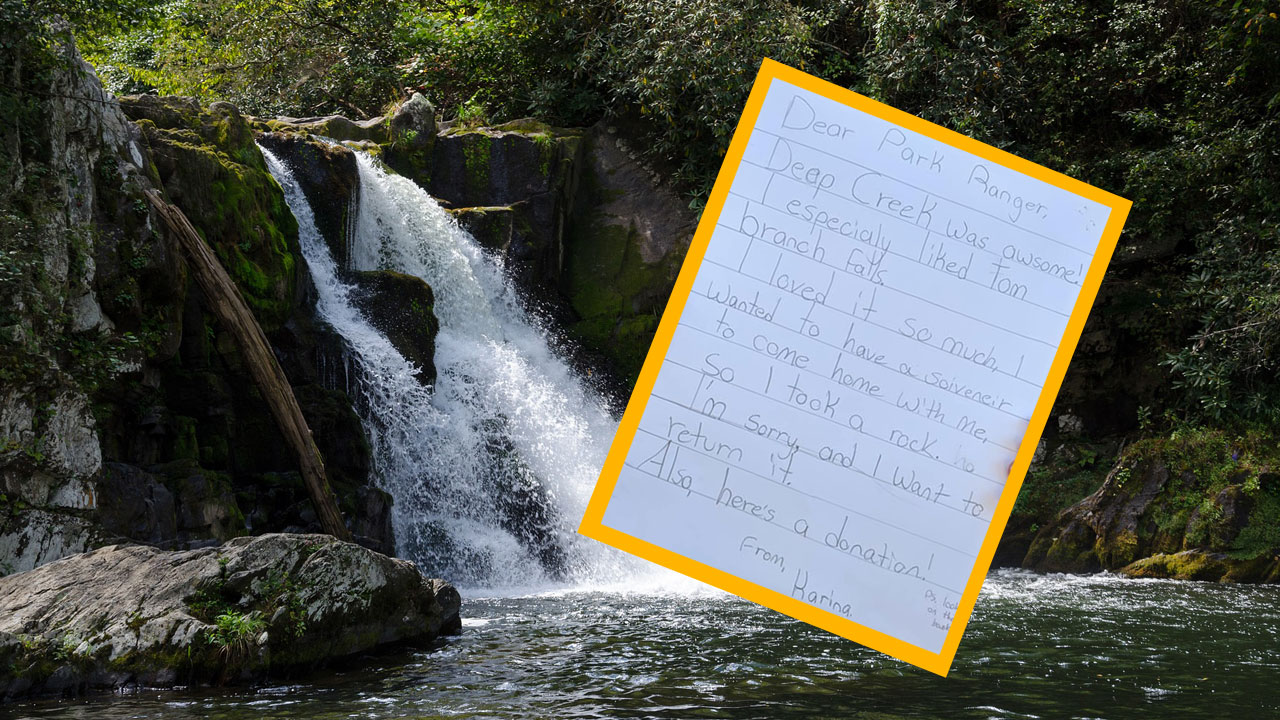 Dear Park Ranger,
Deep Creek was awsome!
I especialy liked Tom
branch falls.
I loved it so much, I
wanted to have a soiveneir
to come home with me,
So I took a rock.
I'm sorry, and I want to
return it.
Also, here's a donation!
From,
Karina,
Ps, look
on the
back